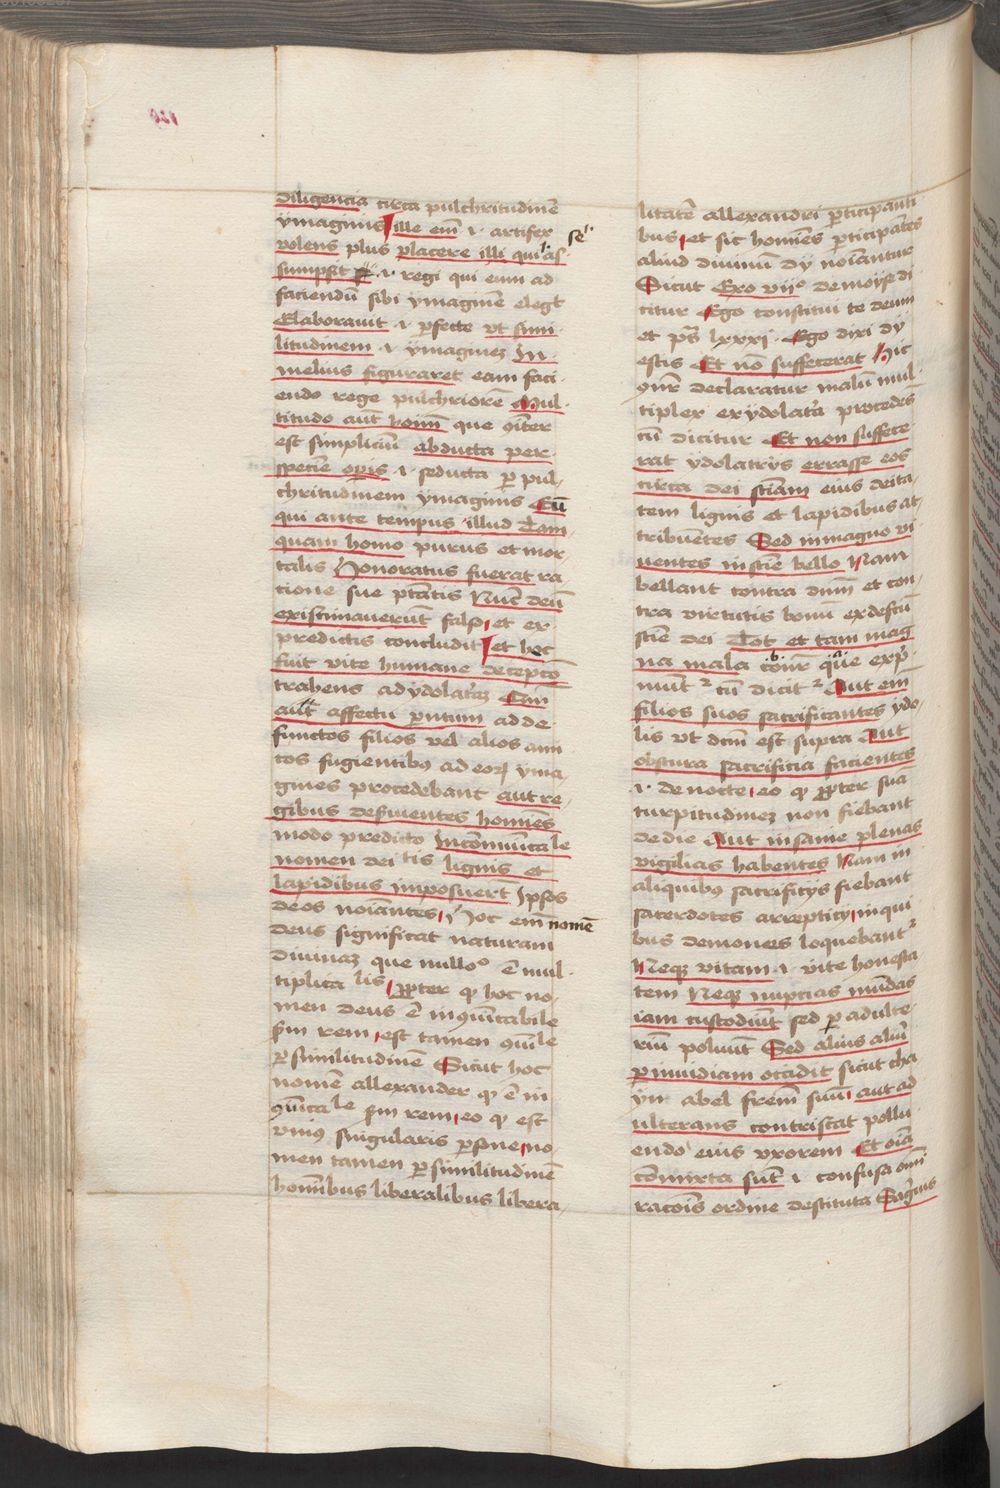 diligencia circa pulchritudinē
ymaginis ille em̄ .i. artifex
volens plus placere illi qui as se
sumpsit .i. regi qui eum ad
faciendū sibi ymaginē elegt
Elaboravit .i. perfecte vt simi
litudinem .i. ymaginez In
melius figuraret eam faci
endo rege pulchriorē Mul
titudo aut hoīm que cōiter
est simpliciū abducta per
speciē opis .i. seducta per pul
chritudinem ymaginis Eū
qui ante tempus illud Tam
quam homo purus et mor
talis Honoratus fuerat ra
cione sue ptātis Nūc deū
existimaverūt falso et ex
predictis concludit et hec
fuit vite humane decepcō
trahens ad ydolatrz Cum
aūt affectu parentum ad de
functos filios vel alios ami
cos fugientibus ad eorum yma
gines procedebant aut re
gibus deseruientes homīes
modo predicto Incōmunicale
nomen dei tis lignis et
lapidibus imposuerūt Ipsos
deos noīantes Hoc em̄ nomē
deus significat naturam
diuinaz que nullo ē mul
tiplicalis propter qd hoc no
men deus ē incōīcabile
scdm rem est tamen cōīcale
per similitudinē Sicut hoc
nomē allexander qd ē in
cōīcale scdm rem eo qd est
vnius singularis persone no
men tamen per similitudinē
homībus liberalibus libera
litatē allexandri perticipanti
bus et sic homīes perticipantes
aliud diuinū dy noīantur
Sicut Exo vijo de moyse di
citur Ego constitui te deum
et ps lxxxi Ego dixi dy
estis Et nō suffecerat Hic
cōnr declaratur malū mul
tiplex ex ydolatria procedēs
cū dicitur Et non suffece
rat ydolatrys errasse eos
circa dei sciam eius deita
tem lignis et lapidibus at
tribuētes Sed in magno vi
uentes inscie bello Nam
bellant contra dnm et con
tra virtutis bonū ex defectu
scie dei Tot et tam mag
na mala
cū dicit Aut em̄
filios suos sacrificantes ydo
lis vt dcm est supra Aut
obscura sacrificia facientes
.i. de nocte eo qd propter suā
turpitudinez non fiebant
de die Aut insanie plenas
vigilias habentes Nam in
aliquibus sacrificys fiebant
sacerdotes arrepticy in qui
bus demones loquebant
Neqz vitam .i. vite honesta
tem Neqz nupcias mūdas
iam custodiūt sed per adulte
riū poluūt Sed alius aliū
per inuidiam occidit sicut cha
yn abel frem suū aut ad
ulterans contristat pollu
endo eius vxorem Et oīa
cōmixta sūt .i. confusa omī
racōis ordine destituta Sagūis